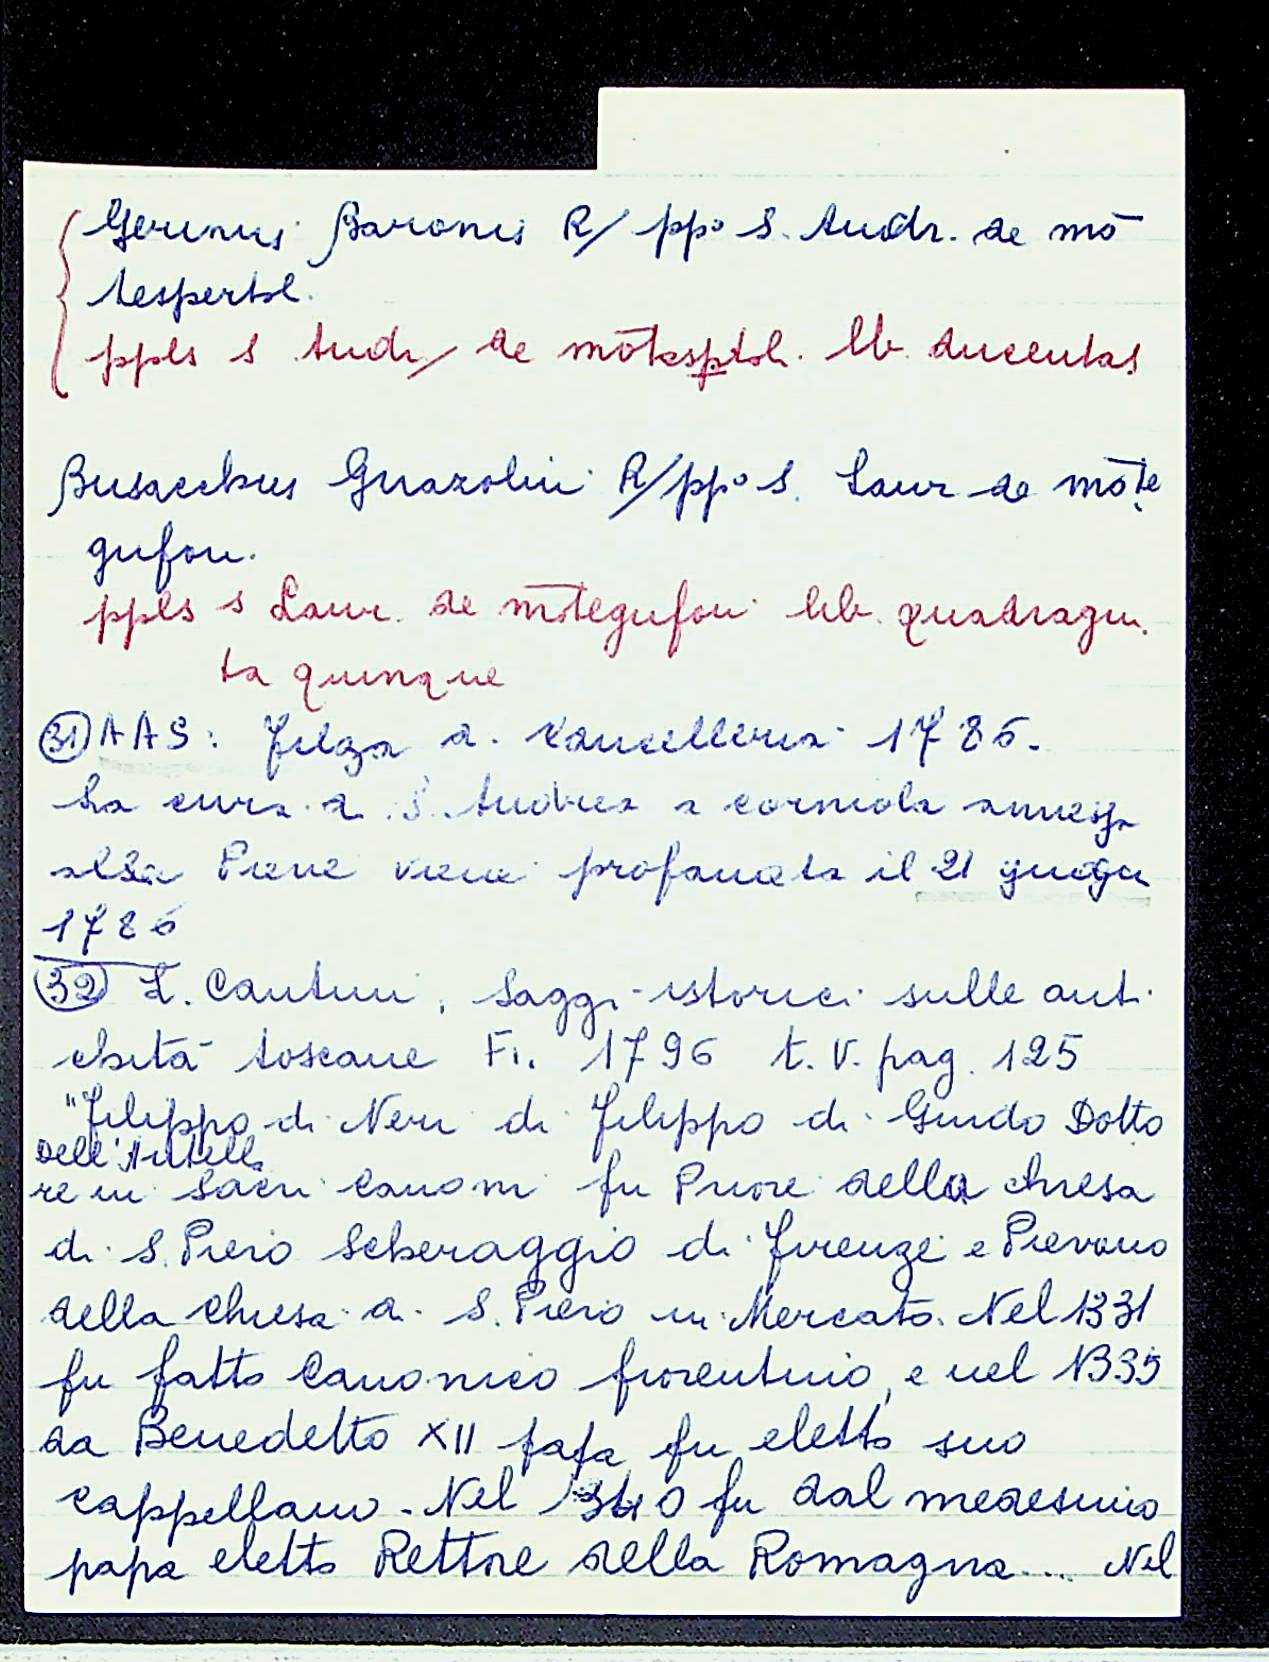 Gerinus Baronis R/ pp° S. Andr. de mō
tespertol.
ppls s Andr/ de mōtesptol. lb. ducentas
Busacchus Guazolini R/pp° S. Laur de mōte
gufon.
ppls s Laur. de mōtegufon lib. quadragin.
ta quinque
31 AAS: filza di Cancelleria 1786.
La cura di S. Andrea a corniola annessa
alla Pieve viene profanata il 21 giugn
1786
32 L. Cantini, Saggi istorici sulle anti
chità toscane Fi. 1796 t. V. pag. 125
"Filippo di Neri di Filippo di Guido Dotto
Dell'Antella
re in Sacri Canoni fu Priore della chiesa
di S. Piero Scheraggio di Firenze e Pievano
della Chiesa di S. Piero in Mercato. Nel 1331
fu fatto Canonico fiorentino, e nel 1335
da Benedetto XII papa fu eletto suo
cappellano. Nel 1340 fu dal medesimo
papa eletto Rettore della Romagna.... Nel